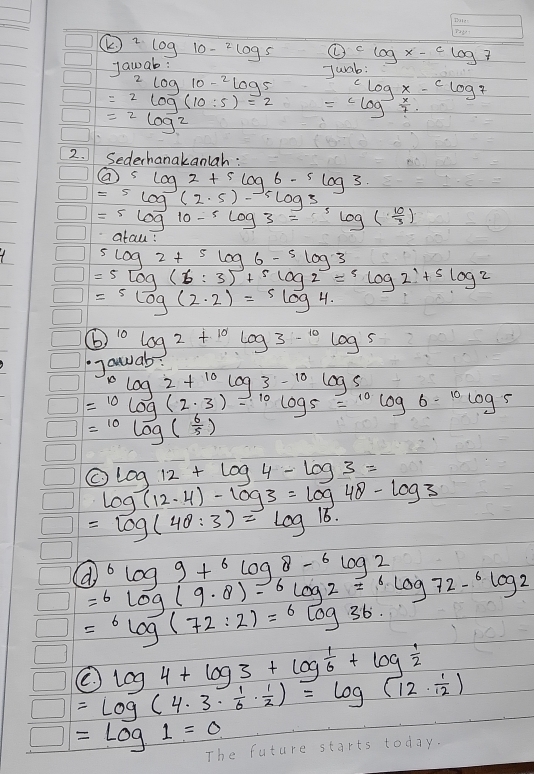 Date:
Page:
(k) ² log 10 - ² log 5
Jawab:
² log 10 - ² log 5
= ² log (10 : 5) = 2
= ² log 2
(l) ᶜ log x - ᶜ log 7
Jwab:
ᶜ log x - ᶜ log 7
= ᶜ log x/7.
2. Sederhanakanlah :
(a) ⁵ log 2 + ⁵ log 6 - ⁵ log 3.
= ⁵ log (2 . 5) - ⁵ log 3
= ⁵ log 10 - ⁵ log 3 = ⁵ log (10/3)
atau :
⁵ log 2 + ⁵ log 6 - ⁵ log 3
= ⁵ log (6 : 3) + ⁵ log 2 = ⁵ log 2 + ⁵ log 2
= ⁵ log (2 . 2) = ⁵ log 4.
(b) ¹⁰ log 2 + ¹⁰ log 3 - ¹⁰ log 5
• Jawab :
¹⁰ log 2 + ¹⁰ log 3 - ¹⁰ log 5
= ¹⁰ log (2 . 3) - ¹⁰ log 5 = ¹⁰ log 6 - ¹⁰ log 5
= ¹⁰ log (6/5)
(c) log 12 + log 4 - log 3 =
log (12 . 4) - log 3 = log 48 - log 3
= log (48 : 3) = log 16.
(d) ⁶ log 9 + ⁶ log 8 - ⁶ log 2
= ⁶ log (9 . 8) - ⁶ log 2 = ⁶ log 72 - ⁶ log 2
= ⁶ log (72 : 2) = ⁶ log 36.
(e) log 4 + log 3 + log 1/6 + log 1/2
= log (4 . 3 . 1/6 . 1/2) = log (12 . 1/12)
= log 1 = 0
The future starts today.